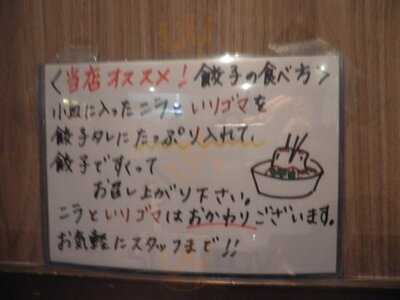 〈当店オススメ！餃子の食べ方〉
小皿に入ったニラといりゴマを
餃子タレにたっぷり入れて、
餃子ですくって
お召し上がり下さい。
ニラといりゴマはおかわりございます。
お気軽にスタッフまで!!